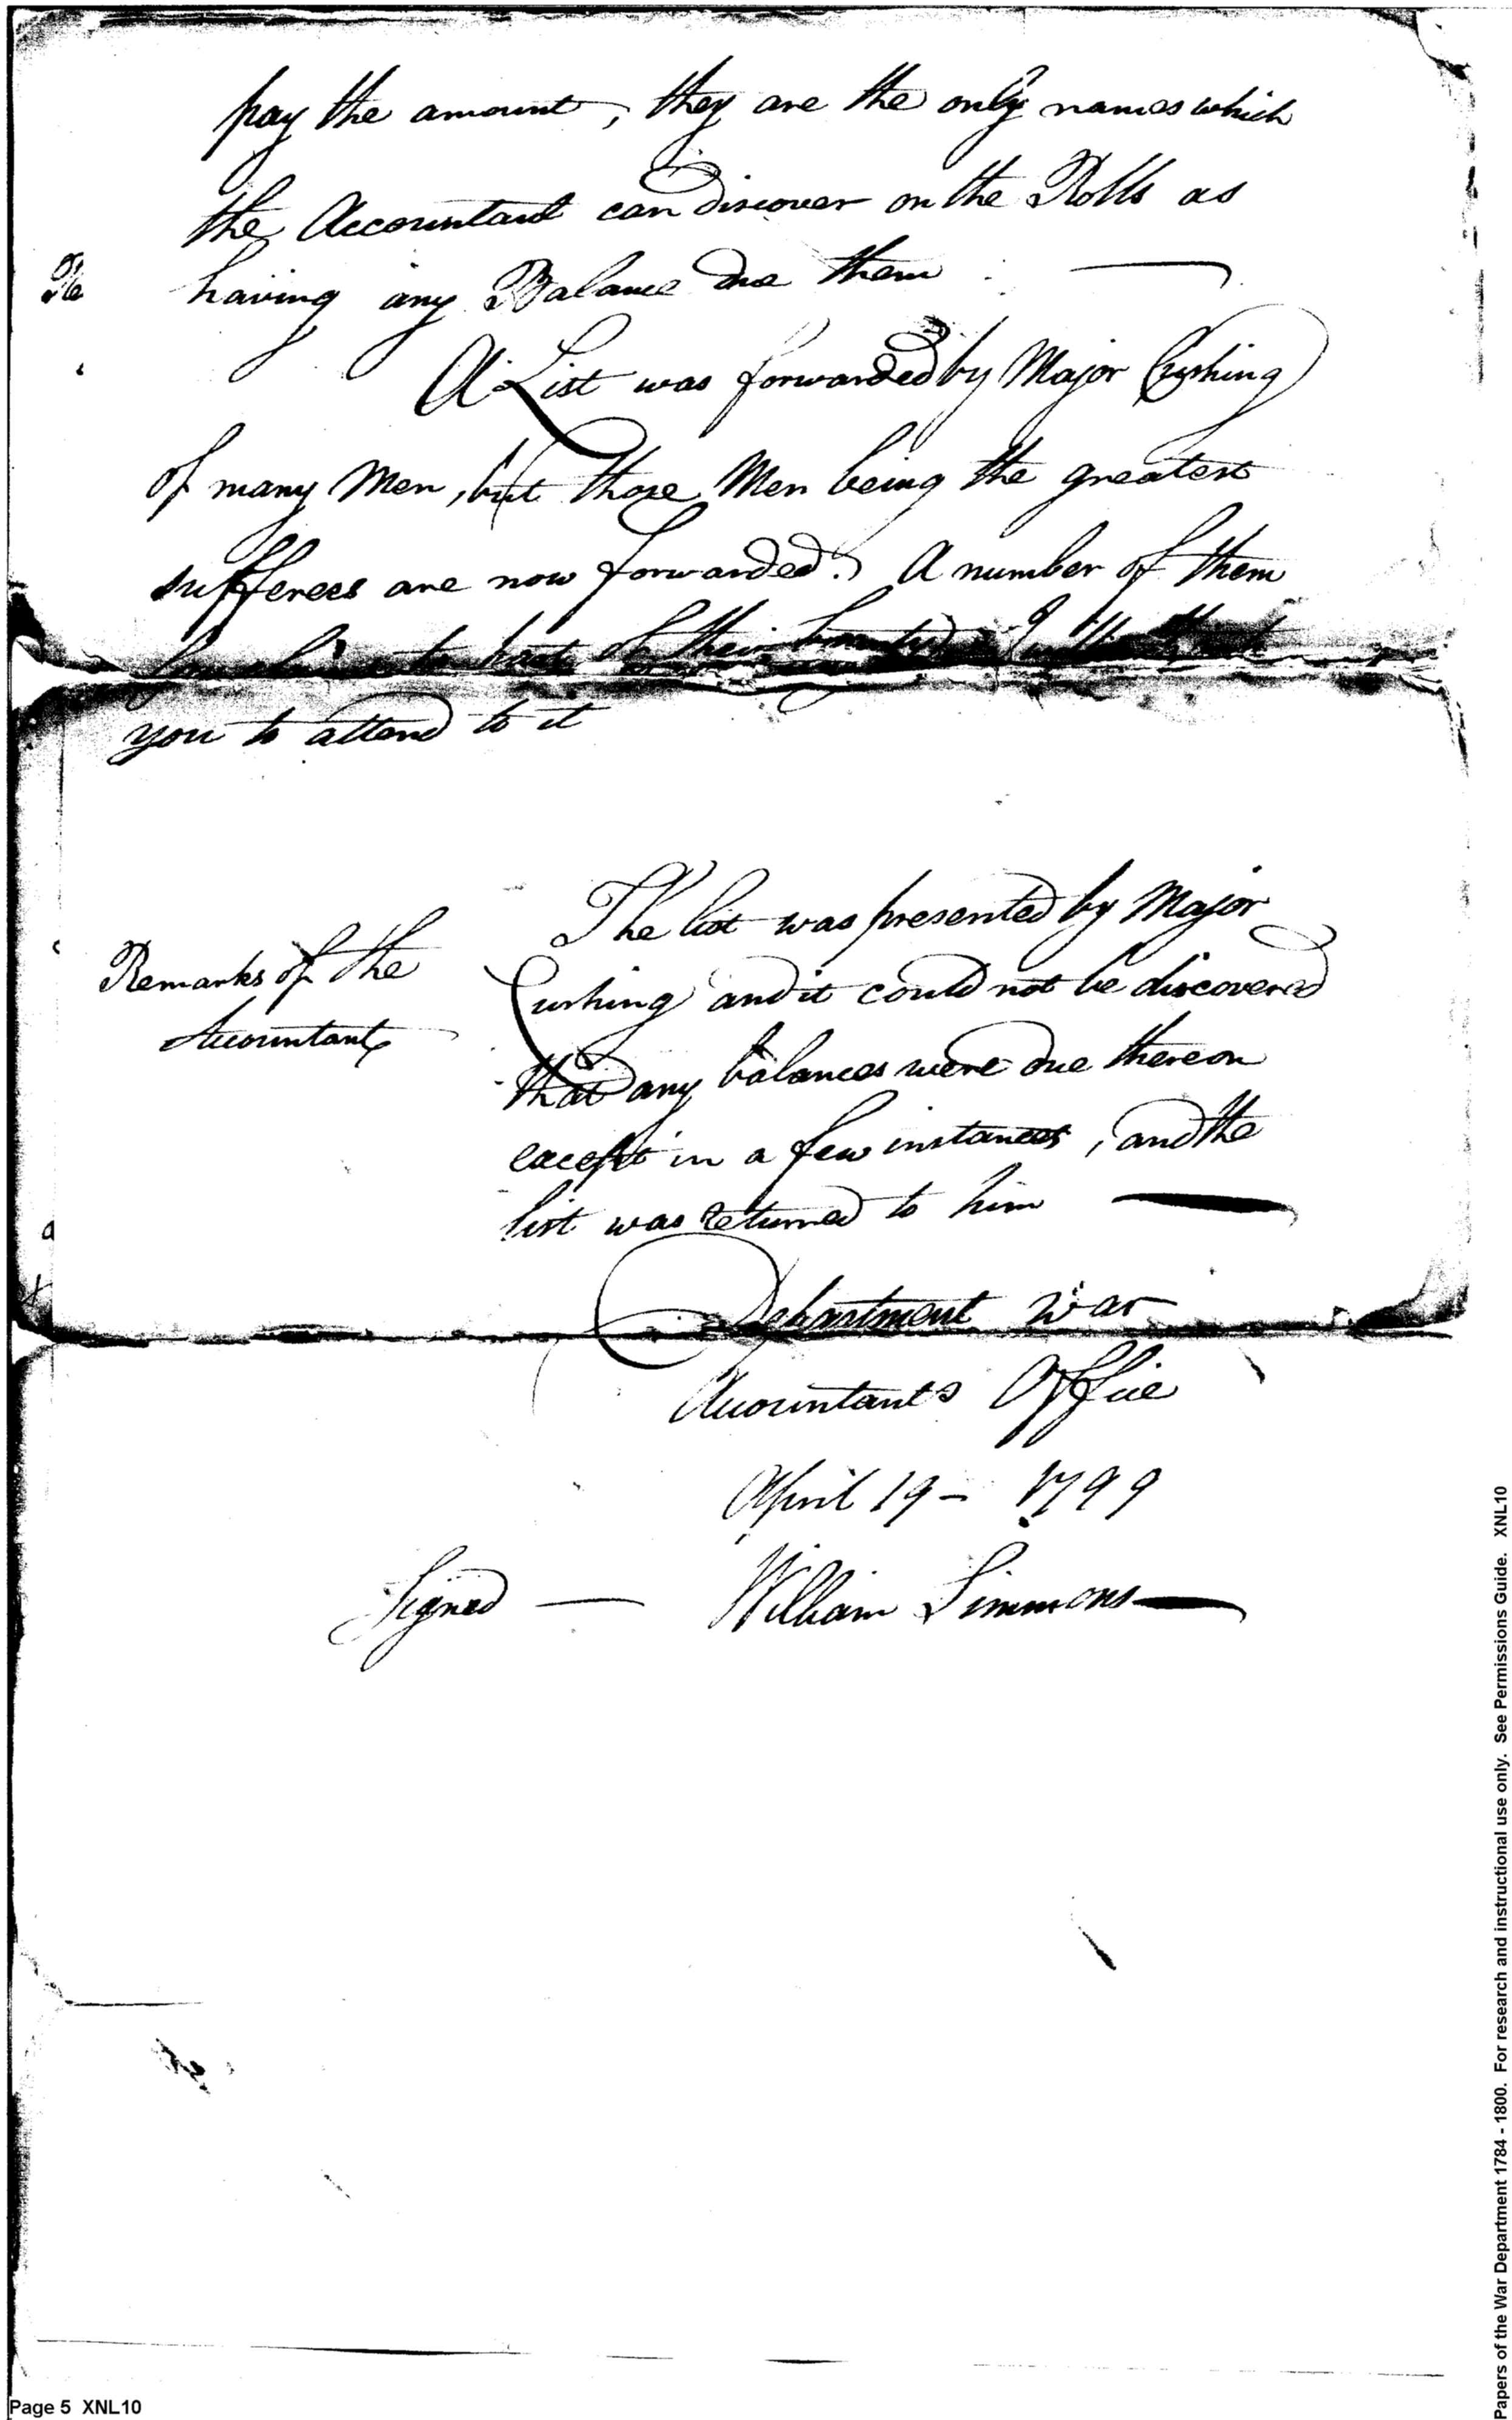 pay the amount, they are the only names which
the Accountant can discover on the Rolls as
having any Balance due them.
Re
A List was forwarded by Major Cushing
of many Men, but those Men being the greatest
sufferees are now forwarded. A number of them
of their
you to attend to it
Remarks of the
Accountant
The list was presented by Major
Cushing and it could not be discovered
that any balances were due thereon
except in a few instances, and the
list was returned to him
a
Department War
Accountants Office
April 19 - 1799
Signed — William Simmons
Page 5 XNL10
Papers of the War Department 1784 - 1800. For research and instructional use only. See Permissions Guide. XNL10